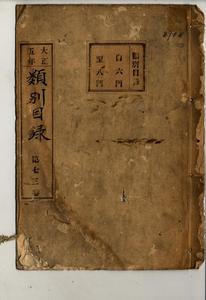 大正
五年
類別目録
第七三
類別目
自六門
至八門